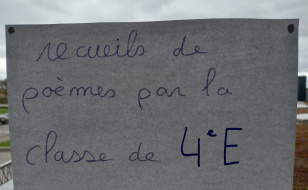 recueils de
poèmes par la
classe de 4e E